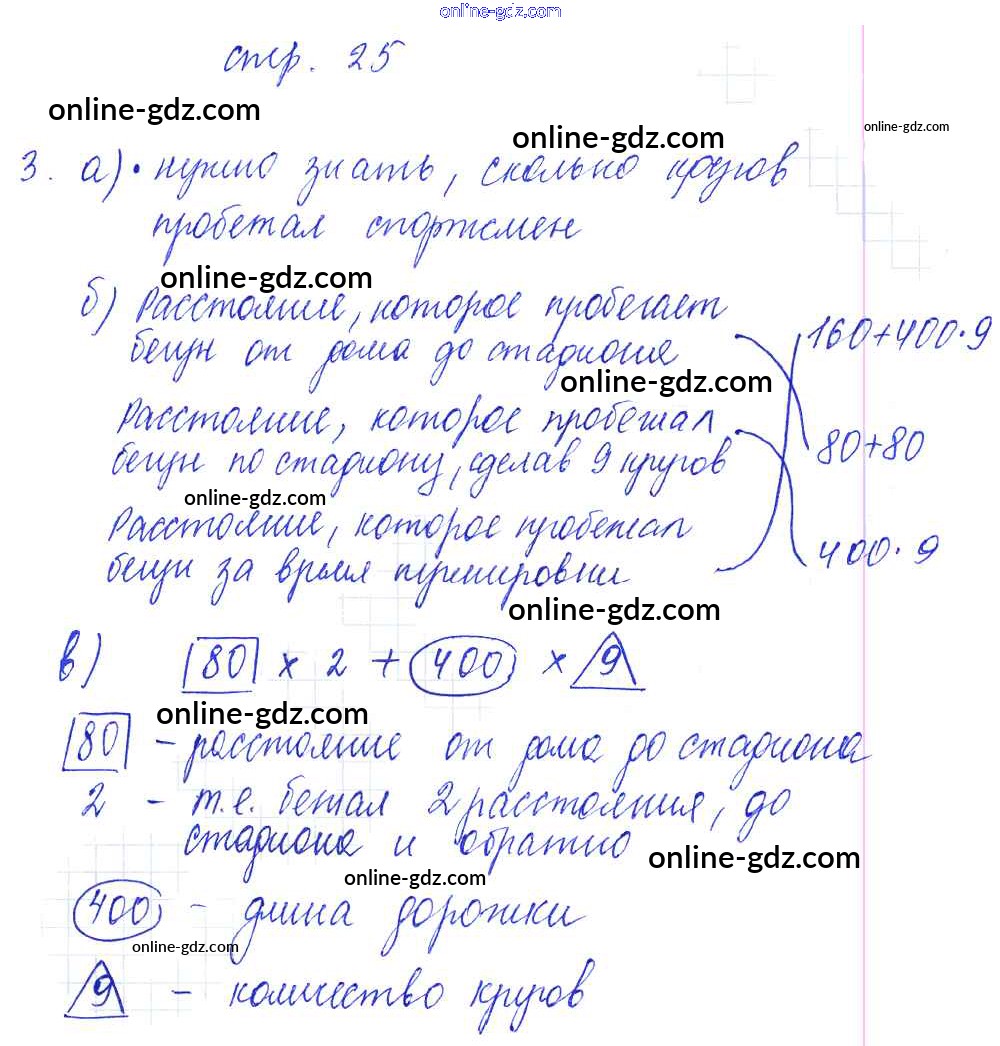 online-gdz.com
стр. 25
online-gdz.com
online-gdz.com
online-gdz.com
3. а) • нужно знать, сколько кругов
пробежал спортсмен
online-gdz.com
б) Расстояние, которое пробегает
бегун от дома до стадиона
160+400·9
online-gdz.com
Расстояние, которое пробежал
бегун по стадиону, сделав 9 кругов
80+80
online-gdz.com
Расстояние, которое пробежал
бегун за время тренировки
400·9
online-gdz.com
в) 80 x 2 + 400 x 9
online-gdz.com
80 - расстояние от дома до стадиона
2 - т.е. бежал 2 расстояния, до
стадиона и обратно
online-gdz.com
online-gdz.com
400 - длина дорожки
online-gdz.com
9 - количество кругов